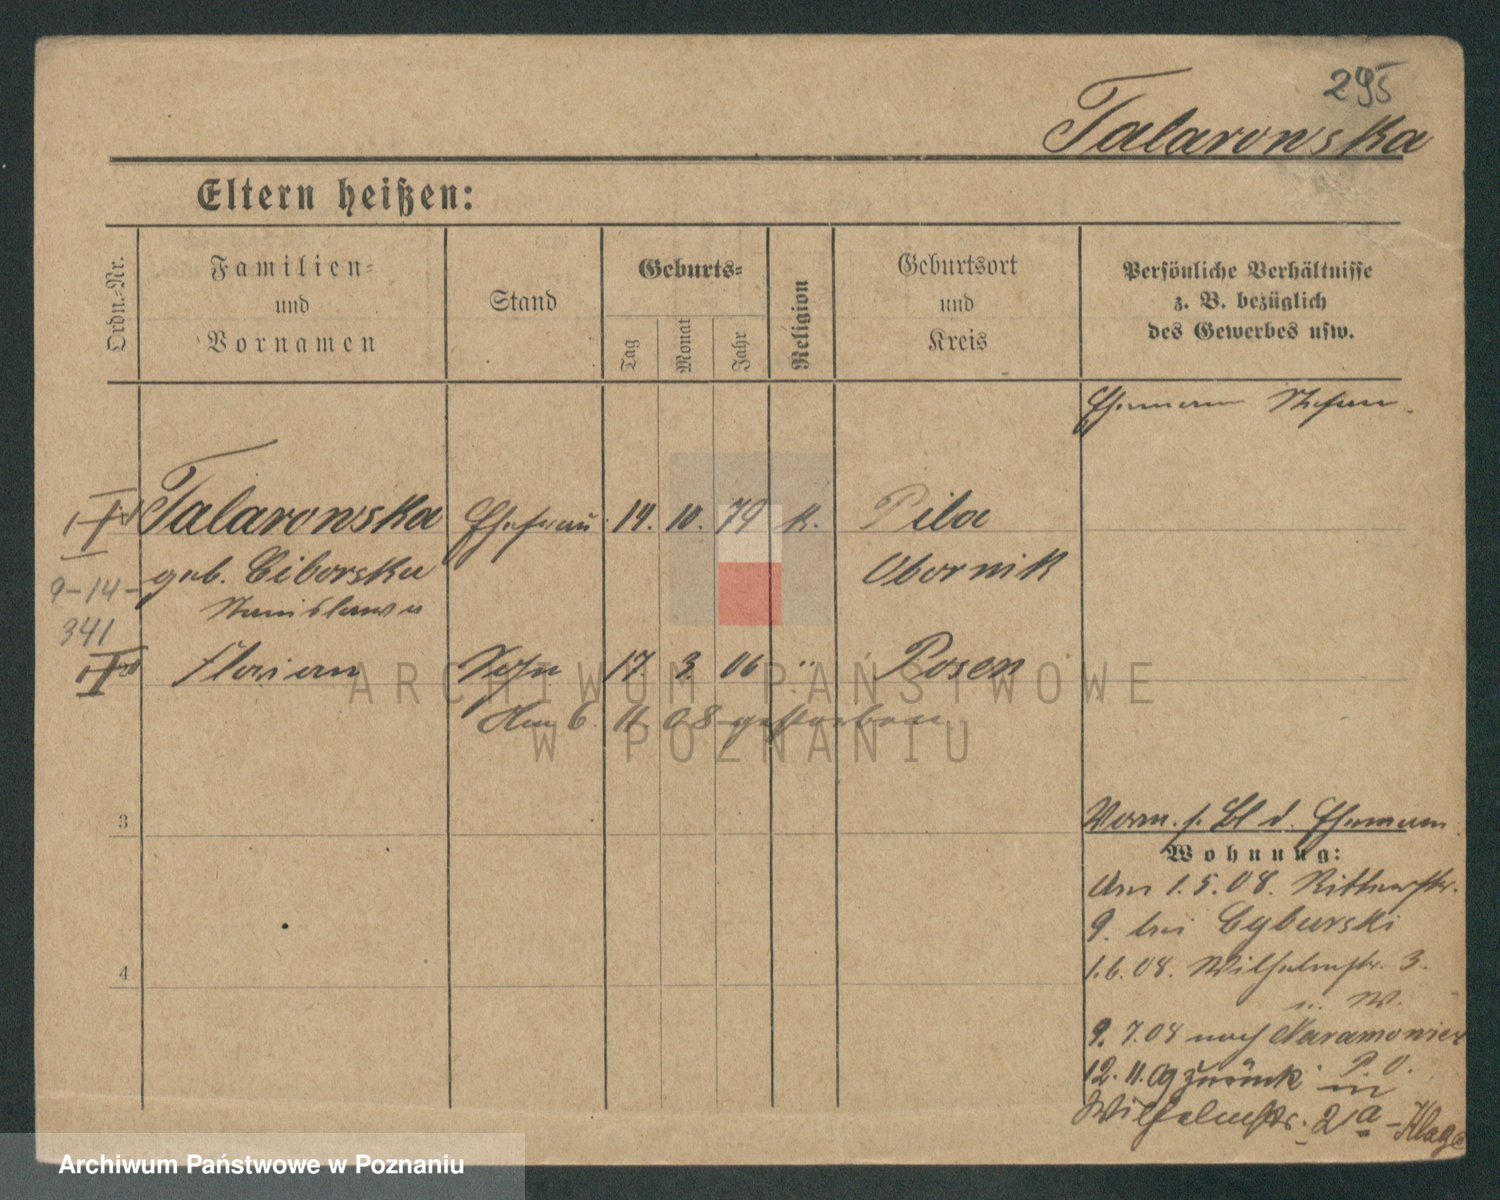 295
Talarowska
Eltern heißen:
Ordn.-Nr.
Familien-
und
Vornamen
Stand
Geburts-
Tag
Monat
Jahr
Religion
Geburtsort
und
Kreis
Persönliche Verhältnisse
z. B. bezüglich
des Gewerbes usw.
Ehemann Stefan.
Talarowska Ehefrau 14. 10. 79 k. Pila
geb. Ciborska Obornik
Stanislawa
9-14-
341
Florian Sohn 17. 3. 06 " Posen
Am 6. 11. 08 gestorben
3
4
Vorm. s. Bl d. Ehemann
Wohnung:
Am 1.5.08. Ritterstr.
9. bei Cyburski
1.6.08. Wilhelmstr. 3.
u. W.
9. 7.08 nach
12. 11. 09 zurück
P. O.
in
Wilhelmstr. 2a -
ARCHIWUM PAŃSTWOWE
W POZNANIU
Archiwum Państwowe w Poznaniu